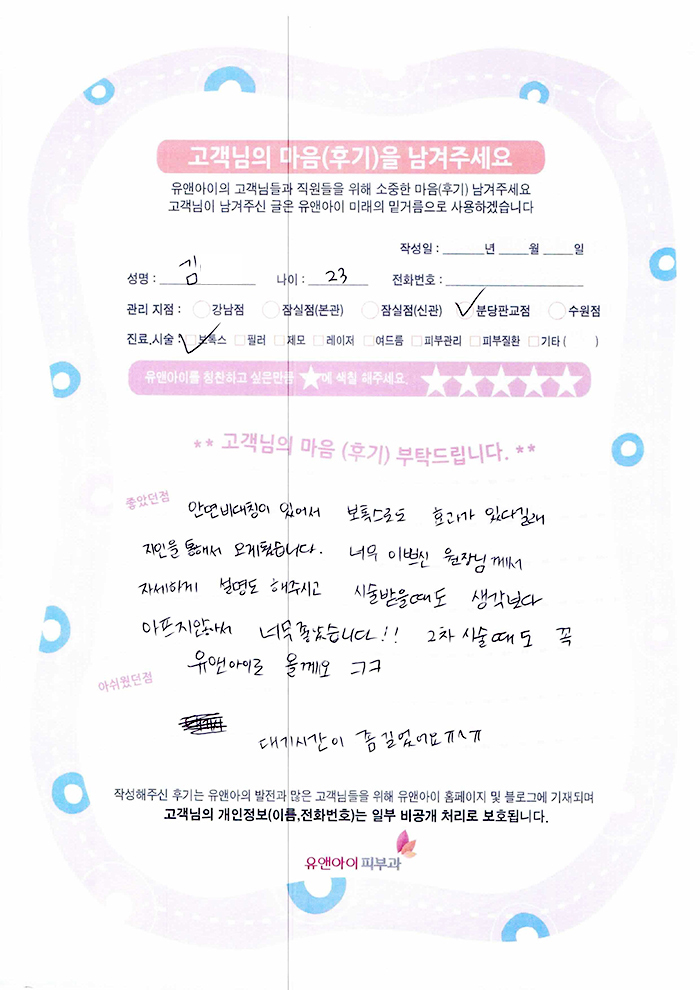 고객님의 마음(후기)을 남겨주세요
유앤아이의 고객님들과 직원들을 위해 소중한 마음(후기) 남겨주세요
고객님이 남겨주신 글은 유앤아이 미래의 밑거름으로 사용하겠습니다
작성일 : ______년 ____월 ____일
성명 : 김 나이 : 23 전화번호 :
관리 지점 : 강남점 잠실점(본관) 잠실점(신관) 분당판교점 수원점
진료,시술 : 보톡스 필러 제모 레이저 여드름 피부관리 피부질환 기타 ( )
유앤아이를 칭찬하고 싶은만큼 ★에 색칠 해주세요. ★★★★★
** 고객님의 마음 (후기) 부탁드립니다. **
좋았던점
안면비대칭이 있어서 보톡스로도 효과가 있다길래
지인을 통해서 오게됐습니다. 너무 이쁘신 원장님께서
자세하게 설명도 해주시고 시술받을때도 생각보다
아프지않아서 너무좋았습니다!! 2차 시술때도 꼭
유앤아이로 올께요 ㅋㅋ
아쉬웠던점
대기시간이 좀 길었어요ㅠ^ㅠ
작성해주신 후기는 유앤아의 발전과 많은 고객님들을 위해 유앤아이 홈페이지 및 블로그에 기재되며
고객님의 개인정보(이름,전화번호)는 일부 비공개 처리로 보호됩니다.
유앤아이피부과